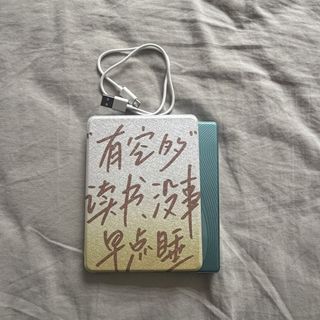 "有空的"
读书、没事
早点睡